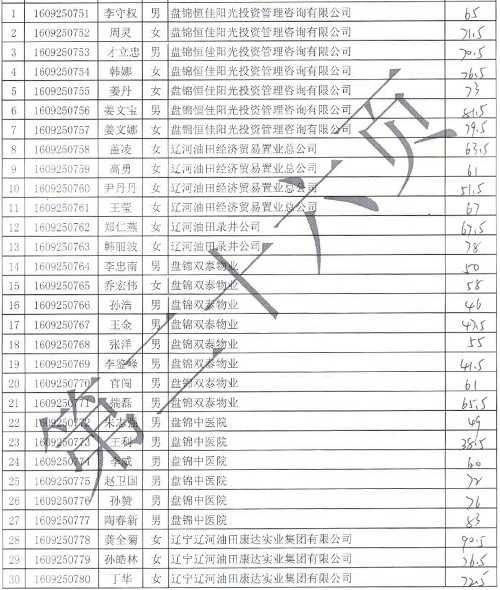 1 1609250751 李守权 男 盘锦恒佳阳光投资管理咨询有限公司 65
2 1609250752 周灵 女 盘锦恒佳阳光投资管理咨询有限公司 71.5
3 1609250753 才立忠 男 盘锦恒佳阳光投资管理咨询有限公司 70.5
4 1609250754 韩娜 女 盘锦恒佳阳光投资管理咨询有限公司 76.5
5 1609250755 姜丹 女 盘锦恒佳阳光投资管理咨询有限公司 73
6 1609250756 姜文宝 男 盘锦恒佳阳光投资管理咨询有限公司 81.5
7 1609250757 姜文娜 女 盘锦恒佳阳光投资管理咨询有限公司 79.5
8 1609250758 盖凌 女 辽河油田经济贸易置业总公司 63.5
9 1609250759 高勇 男 辽河油田经济贸易置业总公司 61
10 1609250760 尹丹丹 女 辽河油田经济贸易置业总公司 51.5
11 1609250761 王莹 女 辽河油田经济贸易置业总公司 67
12 1609250762 郑仁燕 女 辽河油田录井公司 67.5
13 1609250763 韩丽波 女 辽河油田录井公司 78
14 1609250764 李忠南 男 盘锦双泰物业 50
15 1609250765 乔宏伟 女 盘锦双泰物业 58
16 1609250766 孙浩 男 盘锦双泰物业 46
17 1609250767 王金 男 盘锦双泰物业 47.5
18 1609250768 张洋 男 盘锦双泰物业 55
19 1609250769 李鉴峰 男 盘锦双泰物业 41.5
20 1609250770 官闯 男 盘锦双泰物业 61
21 1609250771 端磊 男 盘锦双泰物业 65.5
22 1609250772 宋志强 男 盘锦中医院 49
23 1609250773 王利 男 盘锦中医院 38.5
24 1609250774 李威 男 盘锦中医院 60
25 1609250775 赵卫国 男 盘锦中医院 72
26 1609250776 孙赞 男 盘锦中医院 76
27 1609250777 陶春新 男 盘锦中医院 83
28 1609250778 龚全菊 女 辽宁辽河油田康达实业集团有限公司 90.5
29 1609250779 孙皓林 女 辽宁辽河油田康达实业集团有限公司 76.5
30 1609250780 丁华 女 辽宁辽河油田康达实业集团有限公司 72.5
第二十六页